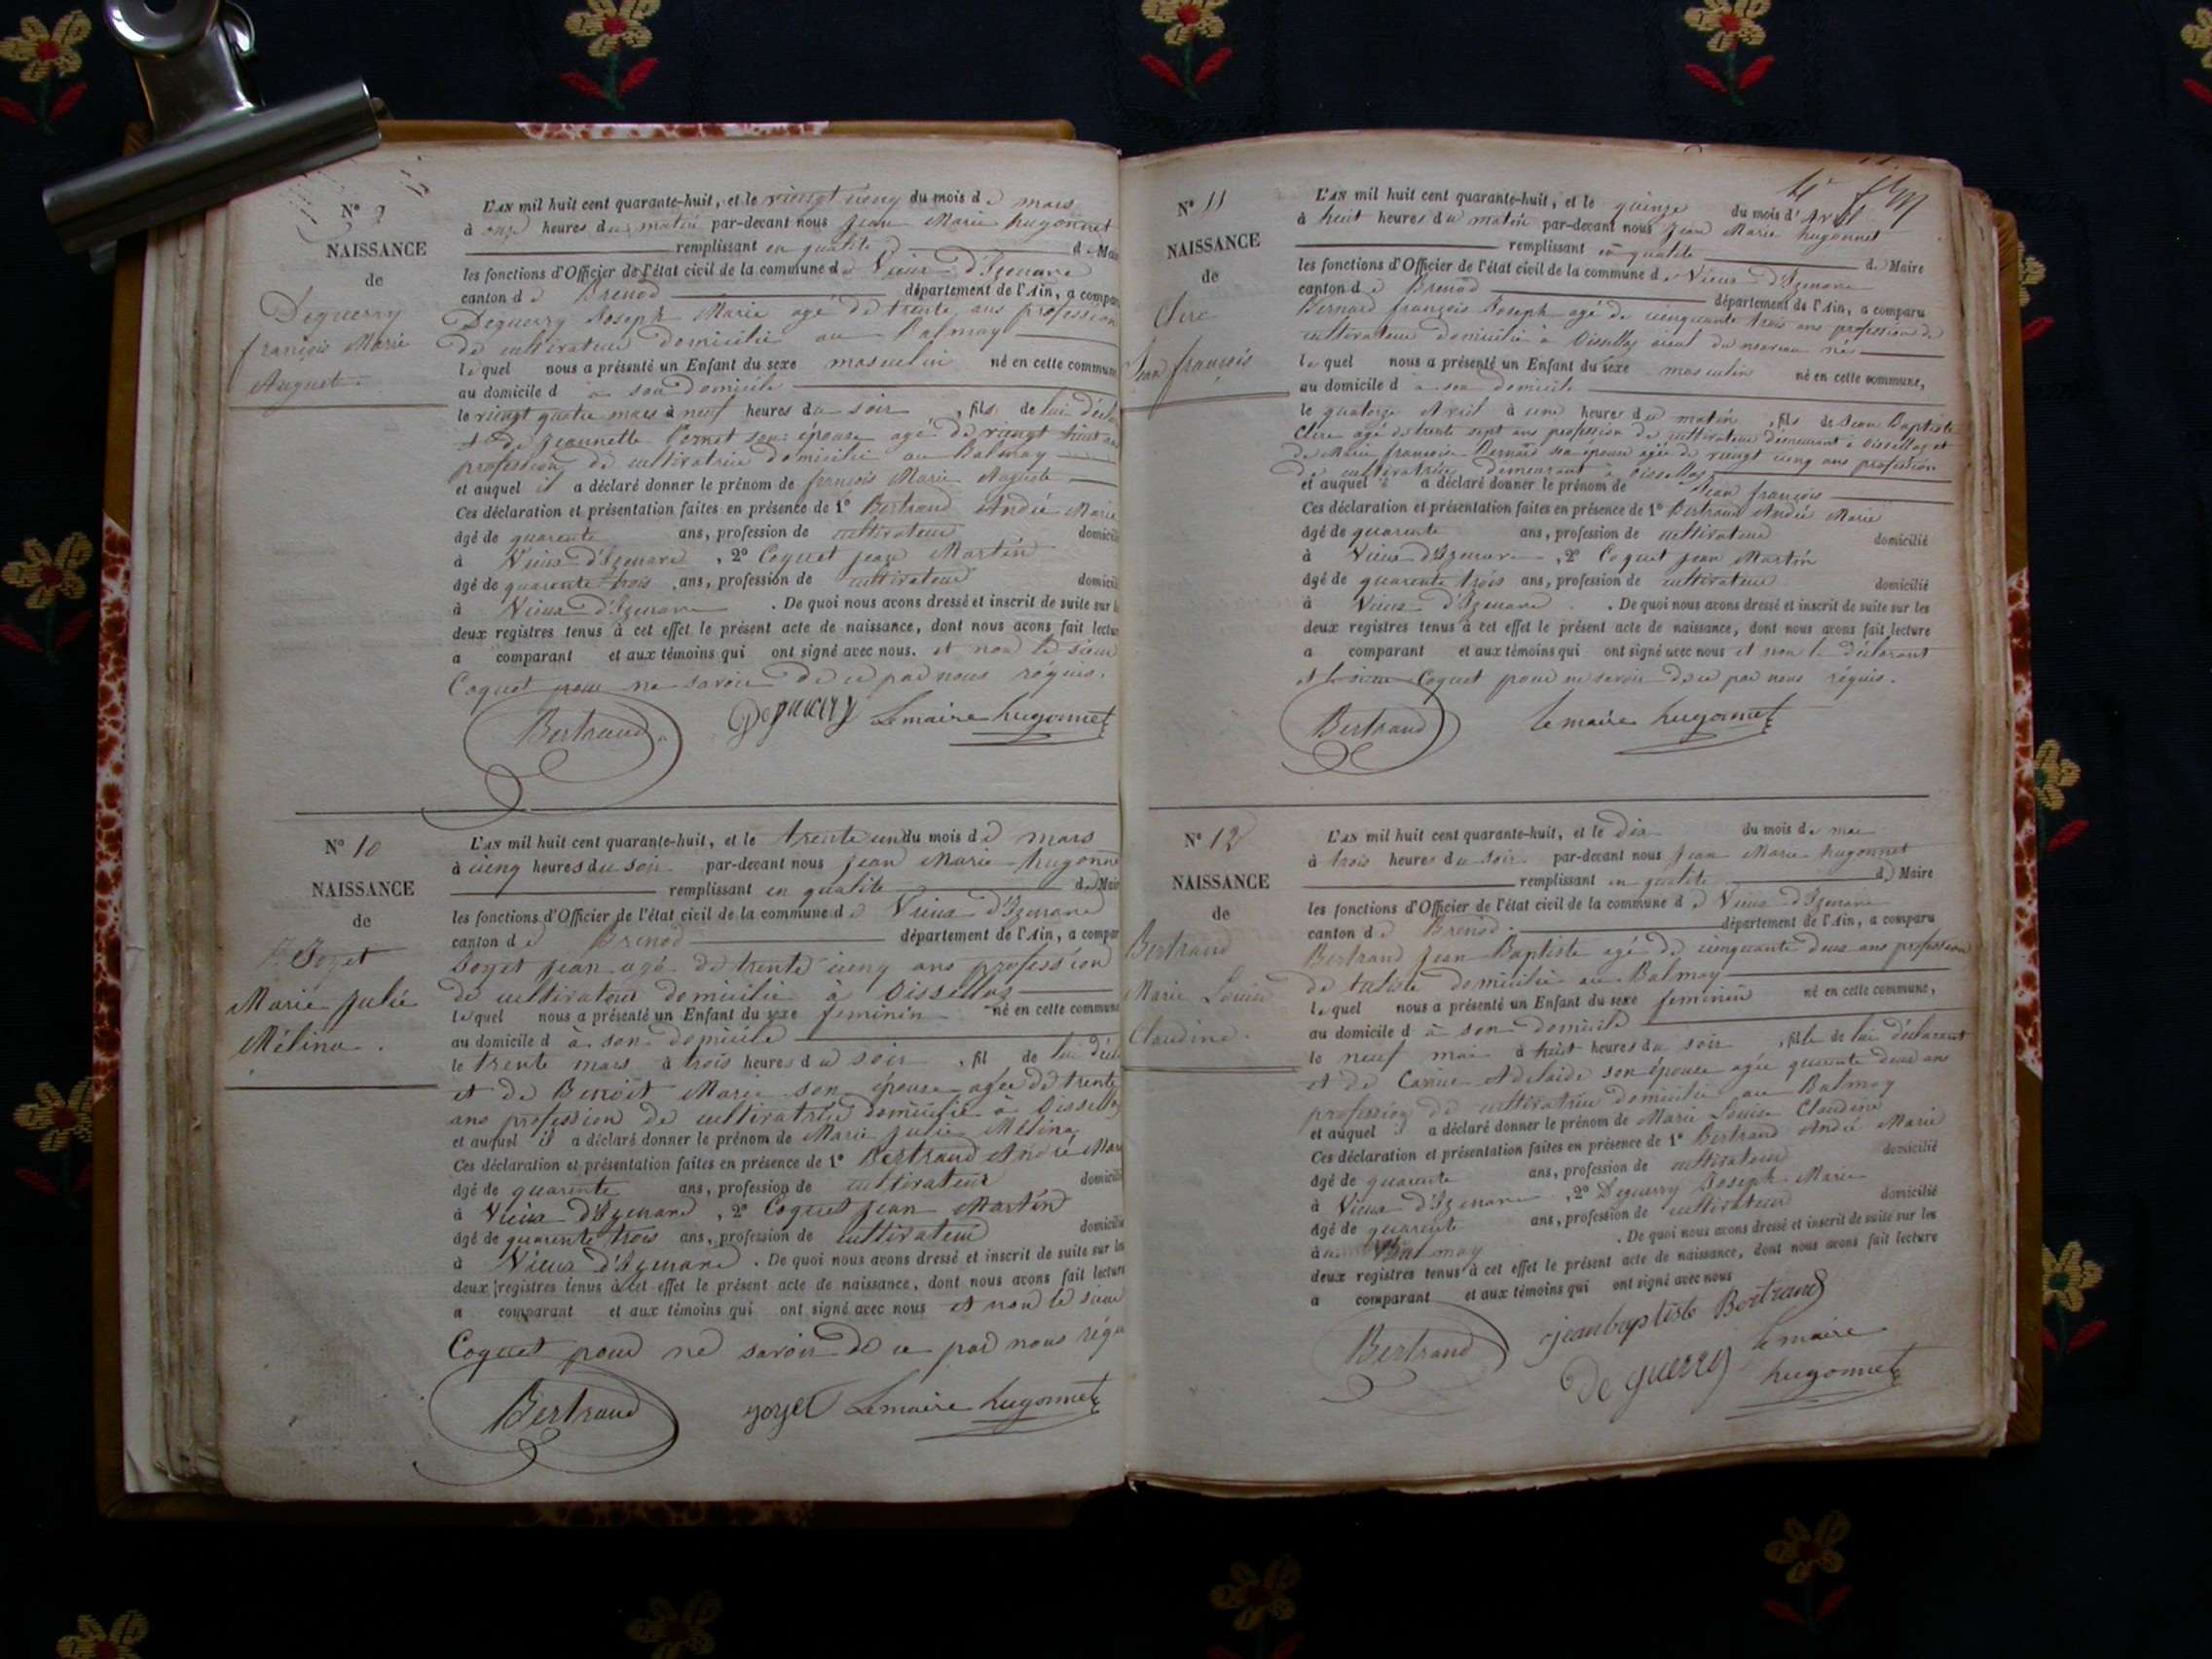 N° 9
NAISSANCE
de
Deguerry
françois Marie
August.
L'AN mil huit cent quarante-huit, et le vingt cinq du mois de mars
à onze heures du matin par-devant nous Jean Marie hugonnet
remplissant en qualité de Mai
les fonctions d'Officier de l'état civil de la commune de Vieux d'Izenave
canton de Brenod département de l'Ain, a compar
Deguerry Joseph Marie agé de trente ans profession
de cultivateur domicilié au Balmay
lequel nous a présenté un Enfant du sexe masculin né en cette commune
au domicile d à son domicile
le vingt quatre mars à neuf heures du soir, fils de lui décla
et de Jeannette Cornet son épouse agé de vingt huit ans
profession de cultivatrice domicilié au Balmay
et auquel il a déclaré donner le prénom de françois Marie Auguste
Ces déclaration et présentation faites en présence de 1° Bertrand André Marie
âgé de quarente ans, profession de cultivateur domicili
à Vieux d'Izenave, 2° Coquet jean Martin
âgé de quarente trois ans, profession de cultivateur domicili
à Vieux d'Izenave. De quoi nous avons dressé et inscrit de suite sur l
deux registres tenus à cet effet le présent acte de naissance, dont nous avons fait lectur
a comparant et aux témoins qui ont signé avec nous. et non le sieur
Coquet pour ne savoir de ce par nous réquis.
Bertrand Deguerry Lemaire hugonnet
N° 10
NAISSANCE
de
Joyet
Marie Julie
Mélina.
L'AN mil huit cent quarante-huit, et le trente un du mois de mars
à cinq heures du soir par-devant nous jean Marie hugonne
remplissant en qualité de Mair
les fonctions d'Officier de l'état civil de la commune de Vieux d'Izenave
canton de Brenod département de l'Ain, a compar
Joyet jean agé de trente cinq ans profession
de cultivateur domicilié à Oissellaz
lequel nous a présenté un Enfant du sexe feminin né en cette commune
au domicile d à son domicile
le trente mars à trois heures du soir, fil de lui décla
et de Benoit Marie son épouse agée de trente
ans profession de cultivatrice domicilié à Oissellaz
et auquel il a déclaré donner le prénom de Marie Julie Mélina
Ces déclaration et présentation faites en présence de 1° Bertrand André Mar
âgé de quarente ans, profession de cultivateur domicili
à Vieux d'Izenave, 2° Coquet jean Martin
âgé de quarente trois ans, profession de cultivateur domicilié
à Vieux d'Izenave. De quoi nous avons dressé et inscrit de suite sur les
deux registres tenus à cet effet le présent acte de naissance, dont nous avons fait lecture
a comparant et aux témoins qui ont signé avec nous et non le sieur
Coquet pour ne savoir de ce par nous réqu
Bertrand joyet Lemaire hugonnet
N° 11
NAISSANCE
de
Clerc
Jean françois
L'AN mil huit cent quarante-huit, et le quinze du mois d'Avril
à huit heures du matin par-devant nous Jean Marie hugonnet
remplissant en qualité de Maire
les fonctions d'Officier de l'état civil de la commune de Vieux d'Izenave
canton de Brenod département de l'Ain, a comparu
Bernard françois Joseph agé de cinquante trois ans profession de
cultivateur domicilié à Oissellaz aieul du nouveau né
lequel nous a présenté un Enfant du sexe masculin né en cette commune,
au domicile d à son domicile
le quatorze Avril à une heures du matin, fils de Jean Baptiste
Clerc agé de trente sept ans profession de cultivateur demeurant à Oissellaz et
de Marie françoise Bernard son épouse agée de vingt cinq ans profession
de cultivatrice demeurant à Oissellaz
et auquel il a déclaré donner le prénom de Jean françois
Ces déclaration et présentation faites en présence de 1° Bertrand André Marie
âgé de quarente ans, profession de cultivateur domicilié
à Vieux d'Izenave, 2° Coquet jean Martin
âgé de quarente trois ans, profession de cultivateur domicilié
à Vieux d'Izenave. De quoi nous avons dressé et inscrit de suite sur les
deux registres tenus à cet effet le présent acte de naissance, dont nous avons fait lecture
a comparant et aux témoins qui ont signé avec nous et non le déclarant
et le sieur Coquet pour ne savoir de ce par nous réquis.
Bertrand le maire hugonnet
N° 12
NAISSANCE
de
Bertrand
Marie Louise
Claudine.
L'AN mil huit cent quarante-huit, et le dix du mois de mai
à trois heures du soir par-devant nous jean Marie hugonnet
remplissant en qualité de Maire
les fonctions d'Officier de l'état civil de la commune de Vieux d'Izenave
canton de Brenod. département de l'Ain, a comparu
Bertrand Jean Baptiste agé de cinquante deux ans profession
de domicilié au Balmay
lequel nous a présenté un Enfant du sexe feminin né en cette commune,
au domicile d à son domicile
le neuf mai à huit heures du soir, fille de lui déclarant
et de Adelaide son épouse agée quarente deux ans
profession de cultivatrice domicilié au Balmay
et auquel il a déclaré donner le prénom de Marie Louise Claudine
Ces déclaration et présentation faites en présence de 1° Bertrand André Marie
âgé de quarente ans, profession de cultivateur domicilié
à Vieux d'Izenave, 2° Deguerry Joseph Marie
âgé de quarente ans, profession de cultivateur domicilié
au Balmay. De quoi nous avons dressé et inscrit de suite sur les
deux registres tenus à cet effet le présent acte de naissance, dont nous avons fait lecture
a comparant et aux témoins qui ont signé avec nous
Bertrand jeanbaptiste Bertrand
De guerry le maire
hugonnet